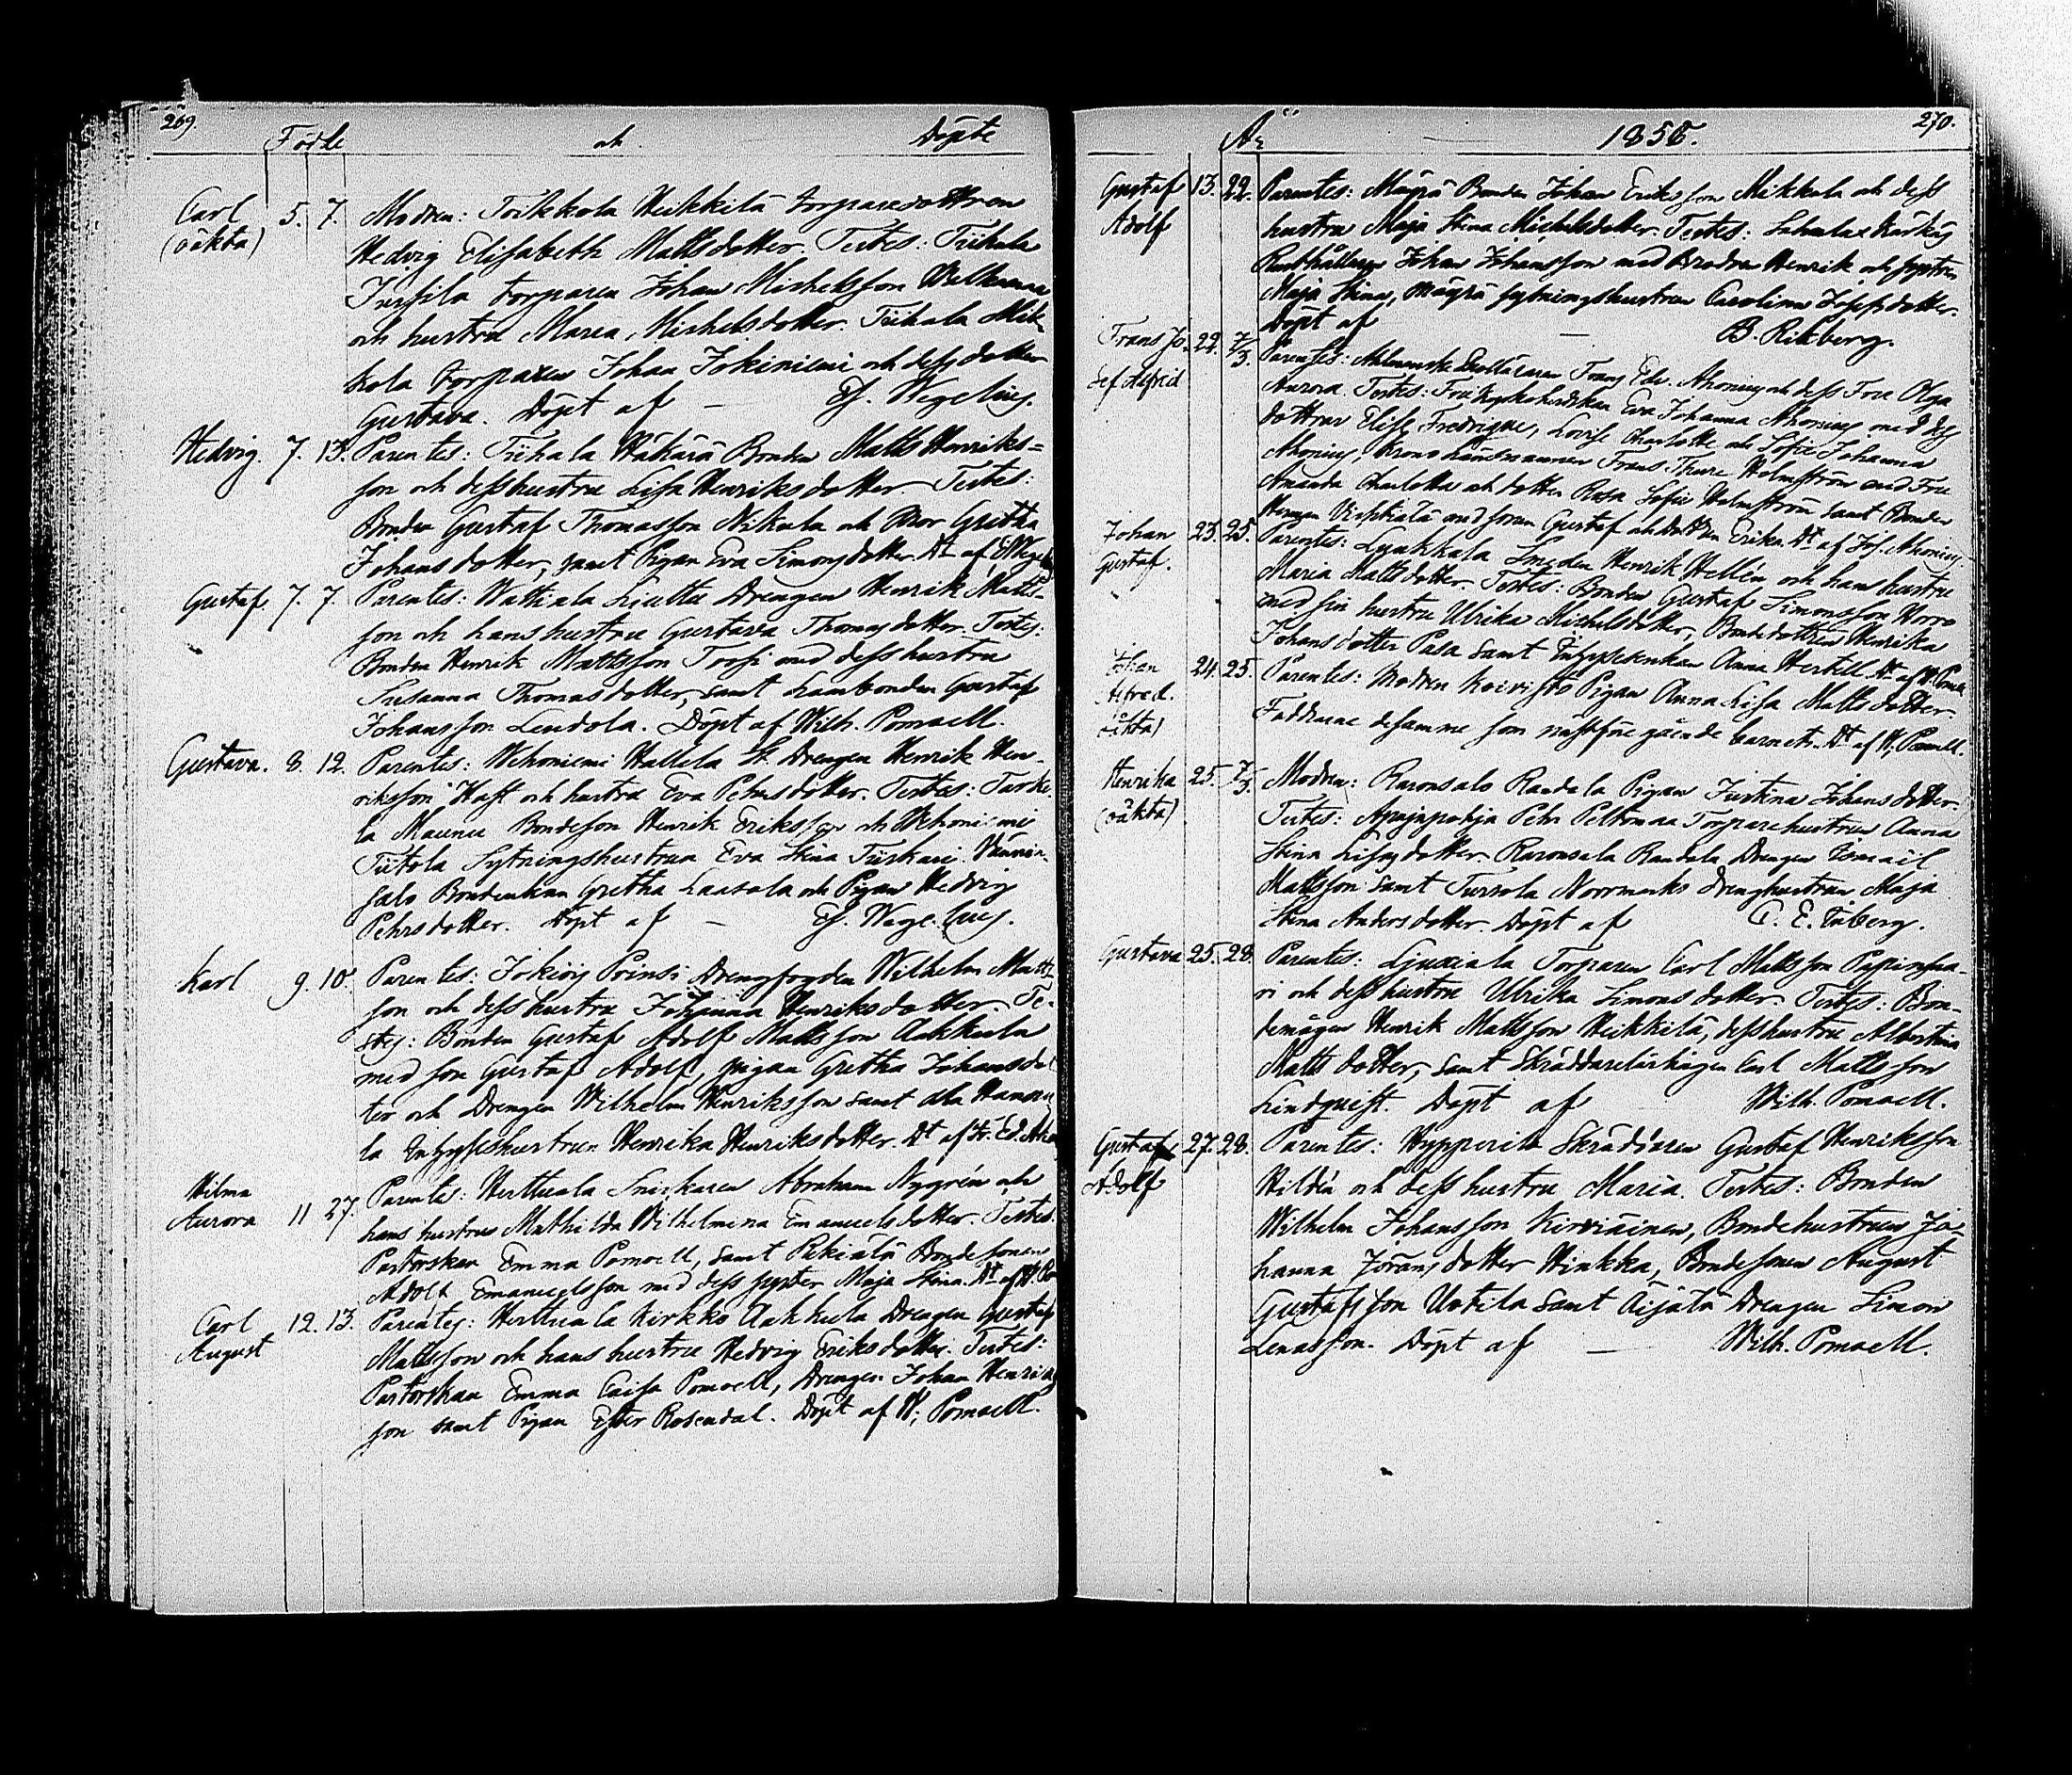 269.
Födde och Döpte
Carl 5. 7. Modren: Toikkola Heikkilä torparedottren
(oäkta) Hedvig Elisabeth Mattsdotter. Testes: Tiihala
Jussila torparen Johan Michelsson Walkama
och hustru Maria Michelsdotter. Tiihala Mik-
kola torparen Johan Jokiniemi och dess dotter
Gustava. Döpt af — Ef. Wegelius.
Hedvig. 7. 13. Parentes: Tiihala Häkärä Bonden Matts Henriks=
son och dess hustru Lisa Henriksdotter. Testes:
Bonden Gustaf Thomasson Nikula och Mor Gretha
Johansdotter, samt Pigan Eva Simonsdotter. Dt af
Gustaf. 7. 7. Parentes: Wathiala Drengen Henrik Matts-
son och hans hustru Gustava Thomasdotter. Testes:
Bonden Henrik Mattsson Torsi med dess hustru
Susanna Thomasdotter, samt Lambonden Gustaf
Johansson Lendola. Döpt af Wilh. Pomoell.
Gustava. 8. 12. Parentes: Wehoniemi Hallila St. Drengen Henrik Hen-
riksson Haft och hustru Eva Pehrsdotter. Testes:
la Maunu Bondeson Henrik Eriksson och Wehoniemi
Tiitola Sytningshustrun Eva Stina Tiiskari.
salo Bondenkan Gretha Laasola och Pigan Hedvig
Pehrsdotter. Döpt af — Ef. Wegelius.
Karl 9. 10. Parentes: Jokioij Prinsi Drengfogden Wilhelm Matts-
son och dess hustru Johanna Henriksdotter. Te-
stes: Bonden Gustaf Adolf Mattsson Aakkula
med son Gustaf Adolf, pigan Gretha Johansdot
ter och Drengen Wilhelm Henriksson samt Ala Hannu
la Inhyseshustrun Henrika Henriksdotter. Dt af
Hilma
Aurora 11 27. Parentes: Herttuala Snickaren Abraham Nygrén och
hans hustru Mathilda Wilhelmina Emanuelsdotter. Testes:
Pastorskan Emma Pomoell, samt Pekiälä Bondesonen
Adolf Emanuelsson med dess syster Maja Stina. Dt af W. Po
Carl 12. 13. Parentes: Herttuala Kirkko Aakkula Drengen Gustaf
August Mattsson och hans hustru Hedvig Eriksdotter. Testes:
Pastorskan Emma Caisa Pomoell, Drengen Johan Henriks
son samt Pigan Ester Rosendal. Döpt af W. Pomoell.
År 1856. 270.
Gustaf 13. 22. Parentes: Mäyrä Bonden Johan Eriksson Mikkola och dess
Adolf hustru Maja Stina Michelsdotter. Testes: Sahalax
Rusthållaren Johan Johansson med Brodren Henrik och systren
Maja Stina, Mäyrä sytningshustrun Carolina Josefsdotter.
Döpt af — B. Rikberg.
Frans Jo- 22. 2/3. Parentes: Frans Edv. Ahonius och dess Fru Olga
sef Alfred Aurora. Testes: Fru Kyrkoherdskan Eva Johanna Ahonius med dess
döttrar Elise Fredrique, Lovise Charlotte och Sofie Johanna
Ahonius, Kronolänsmannen Frans Thure Holmström med Fru
Amanda Charlotta och dotter Rosa Sofie Holmström samt Bonden
Herman med sonen Gustaf och dottren Erika. Dt af Jos. Ahonius.
Johan 23. 25. Parentes: Lyukkala Smeden Henrik Hellén och hans hustru
Gustaf. Maria Mattsdotter. Testes: Bonden Gustaf Simonsson Horro
med sin hustru Ulrika Michelsdotter, Bondedottren Henrika
Johansdotter Pasa samt Inhysesenkan Anna Hertell. Dt af W. Pomo
Johan 24. 25. Parentes: Modren Koivisto Pigan Anna Lisa Mattsdotter.
Alfred. Faddrarne desamme som näst före gående barnets. Dt af W. Pomoell.
Henrika 25. 2/3. Modren: Raronsalo Randala Pigan Justina Johansdotter.
(oäkta) Testes: Apajapohja Pehr Peltomaa Torparehustrun Anna
Stina Raronsalo Randala Drengen Ismaël
Mattsson samt Tursola Norrmarks drenghustrun Maja
Stina Andersdotter. Döpt af C. E. Fåberg.
Gustava 25. 28. Parentes: Ljuxiala Torparen Carl Mattsson
ri och dess hustru Ulrika Simonsdotter. Testes: Bon-
demågen Henrik Mattsson Heikkilä, dess hustru Albertina
Matts dotter, samt Skräddarelärlingen Carl Mattsson
Lindqvist. Döpt af Wilh. Pomoell.
Gustaf 27. 28. Parentes: Wypperilä Skräddaren Gustaf Henriksson
Adolf Hildén och dess hustru Maria. Testes: Bonden
Wilhelm Johansson Kirviäinen, Bondehustrun Jo-
hanna Göransdotter Hinkka, Bondesonen August
Gustafsson Uotila samt Äijälä Drengen Simon
Lenasson. Döpt af — Wilh. Pomoell.